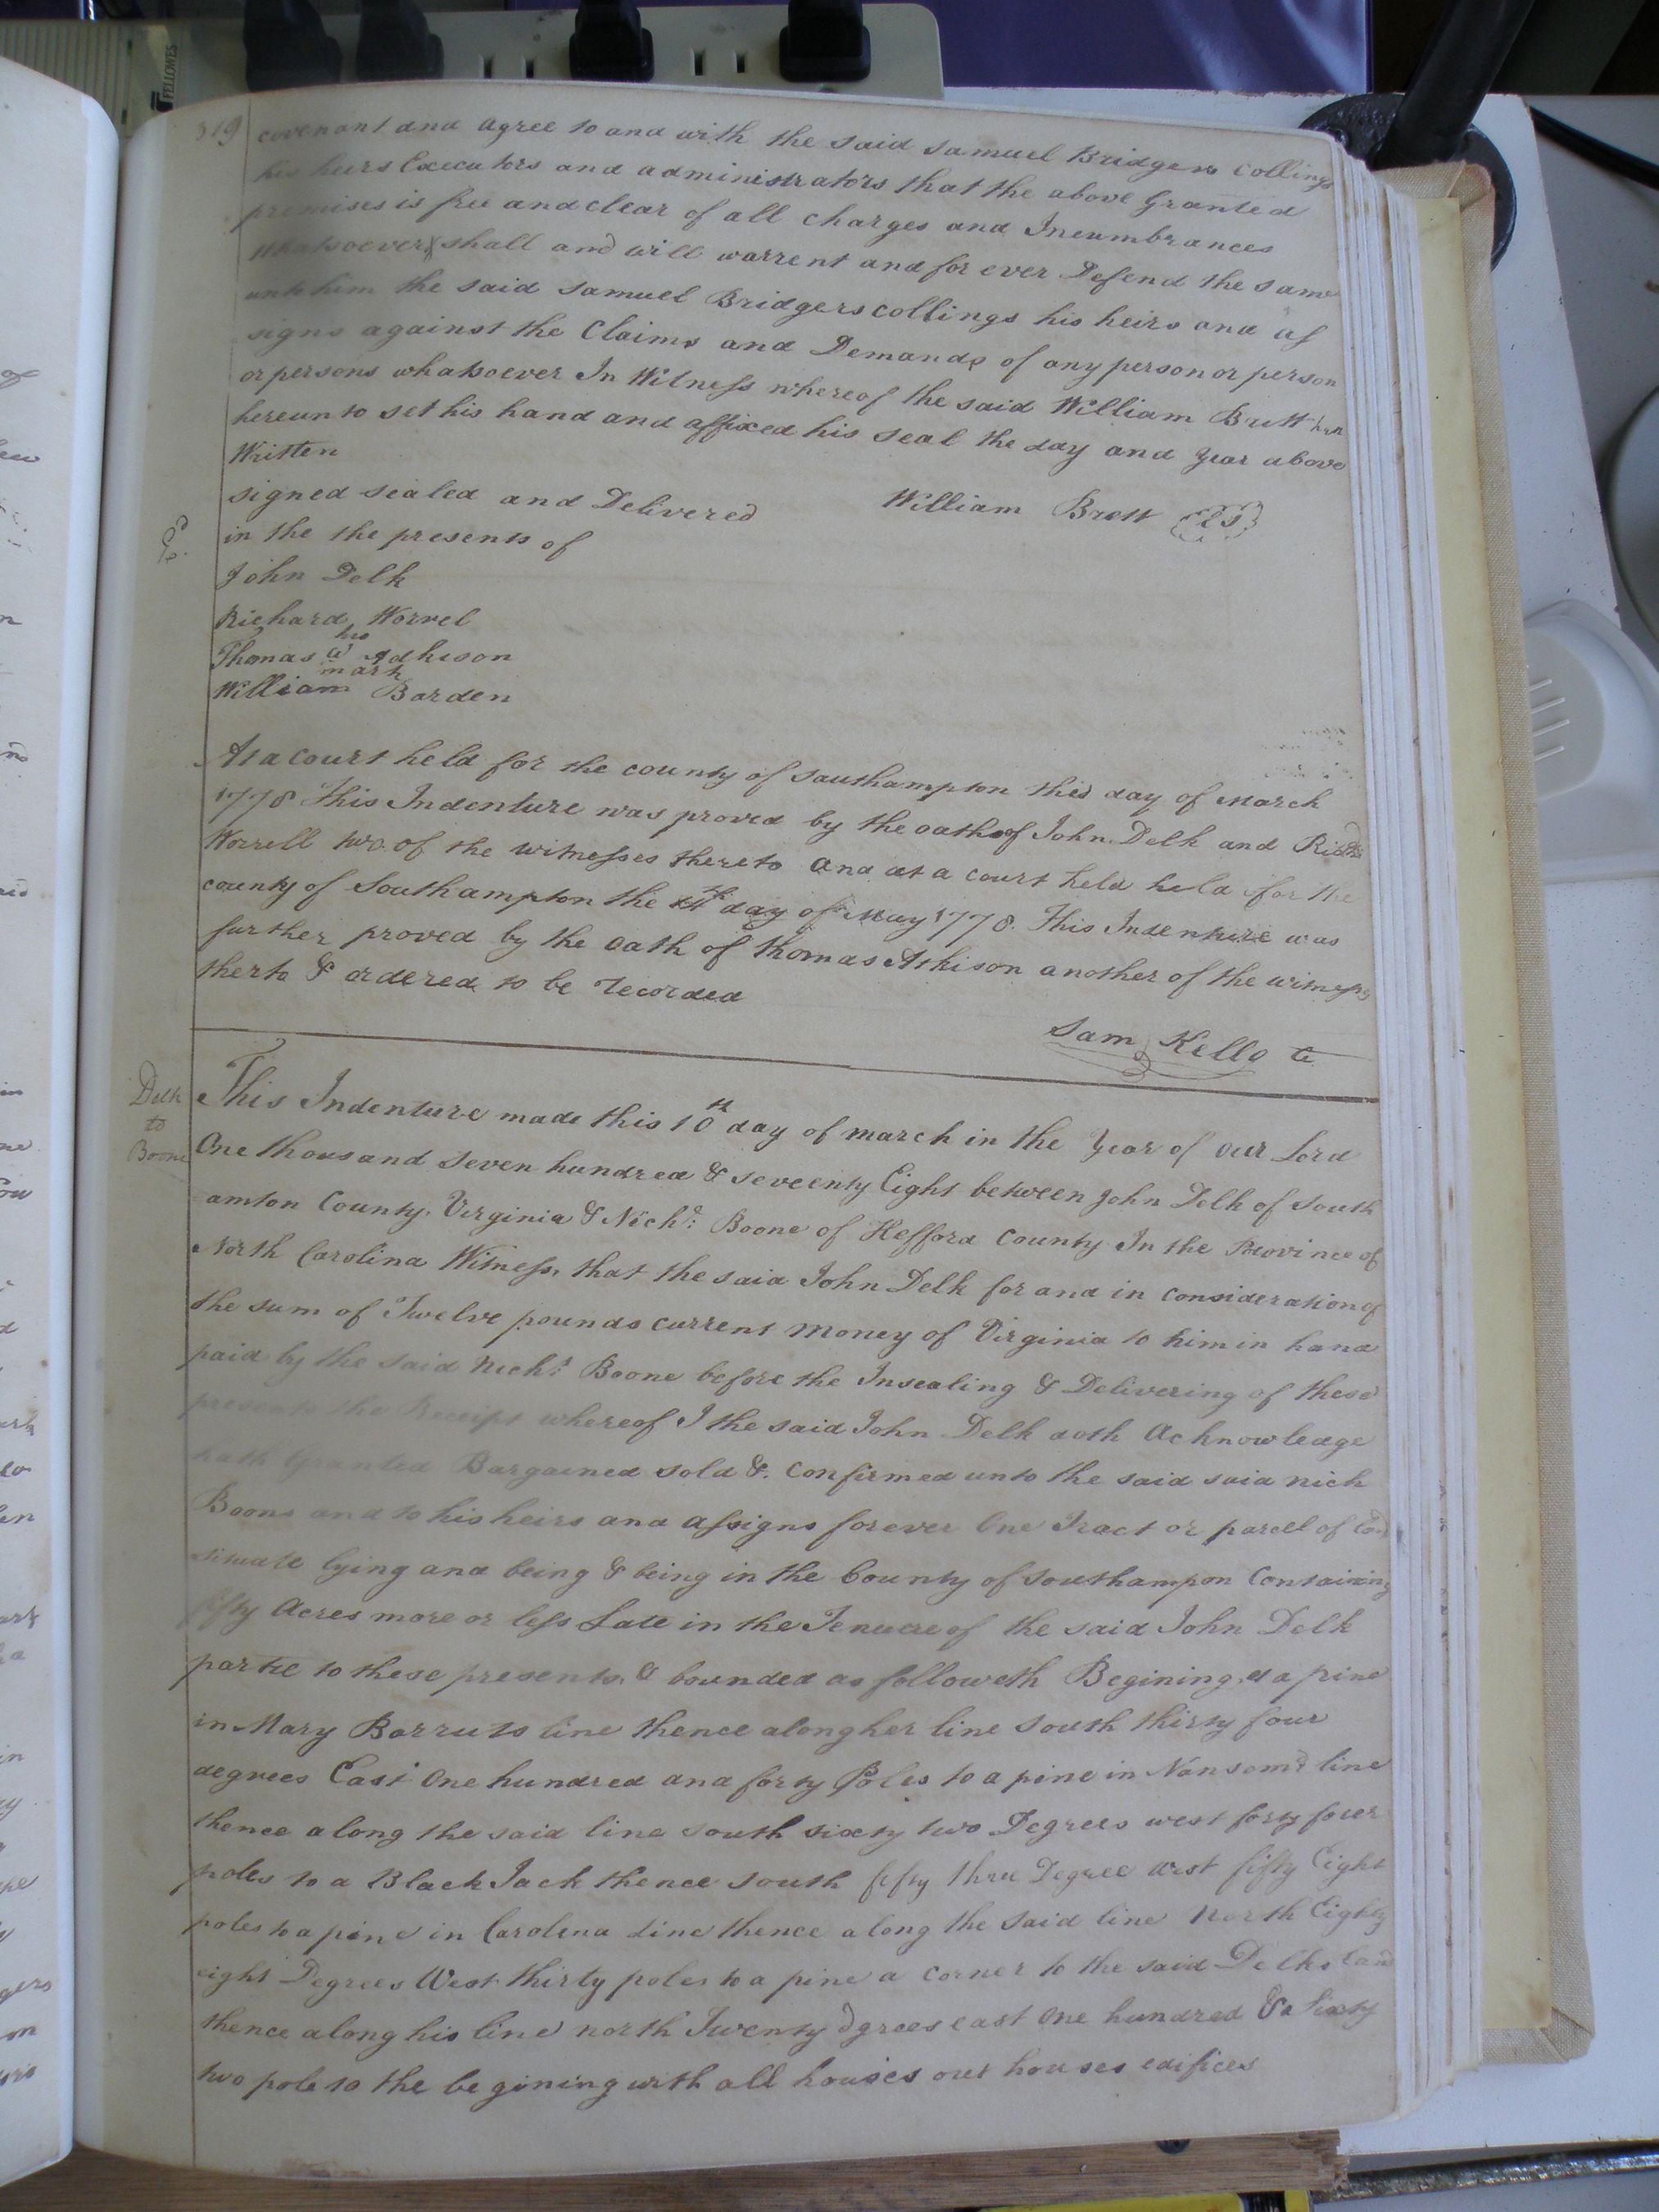 FELLOWES
319
covenant and agree to and with the said Samuel Bridgers Collings
his heirs Executors and administrators that the above Granted
premises is free and clear of all charges and Incumbrances
Whatsoever & shall and will warrent and for ever Defend the same
unto him the said Samuel Bridgers collings his heirs and as
signs against the Claims and Demands of any person or person
or persons whatsoever In Witness whereof the said William Brett
hereunto set his hand and affixed his seal the day and year above
Written
signed sealed and Delivered William Brett LS
in the the presents of
John Delk
Richard Worrel
his
Thomas Adkison
mark
William Barden
At a court held for the county of Southampton this day of March
1778 This Indenture was proved by the oaths of John Delk and Richd
Worrell two of the witnesses thereto and at a court held held for the
county of Southampton the day of May 1778. This Indenture was
further proved by the oath of thomas Atkison another of the witness
therto & ordered to be recorded
Sam Kello
Delk
to
Boone
This Indenture made this 10th day of march in the Year of our Lord
One thousand seven hundred & seveenty Eight between John Delk of South
amton County. Virginia & Nichs: Boone of Hefford County In the Provinceof
North Carolina Witness, that the said John Delk for and in consideration of
the sum of Twelve pounds current money of Virginia to him in hand
paid by the said Nichs: Boone before the Insealing & Delivering of these
presents the Receipt whereof I the said John Delk doth Acknowledge
hath Granted Bargained sold &. Confirmed unto the said said nich
Boone and to his heirs and assigns forever One Tract or parcell of
situate lying and being & being in the County of Southampon Containing
fifty Acres more or less Late in the Tenuere of the said John Delk
partie to these presents, & bounded as followeth Begining at a pine
in Mary Barruts line thence along her line South thirty four
degrees East One hundred and forty Poles to a pine in Nansemd line
thence along the said line south sixty two Degrees west forty fouer
poles to a Black Jack thence South fifty three Degree west fifty Eight
poles to a pine in Carolina Line thence along the said line North Eighty
eight Degrees West thirty poles to a pine a Corner to the said Delks land
thence along his line north Twenty dgrees east One hundred & Sixty
two pole to the begining with all houses out houses edifices